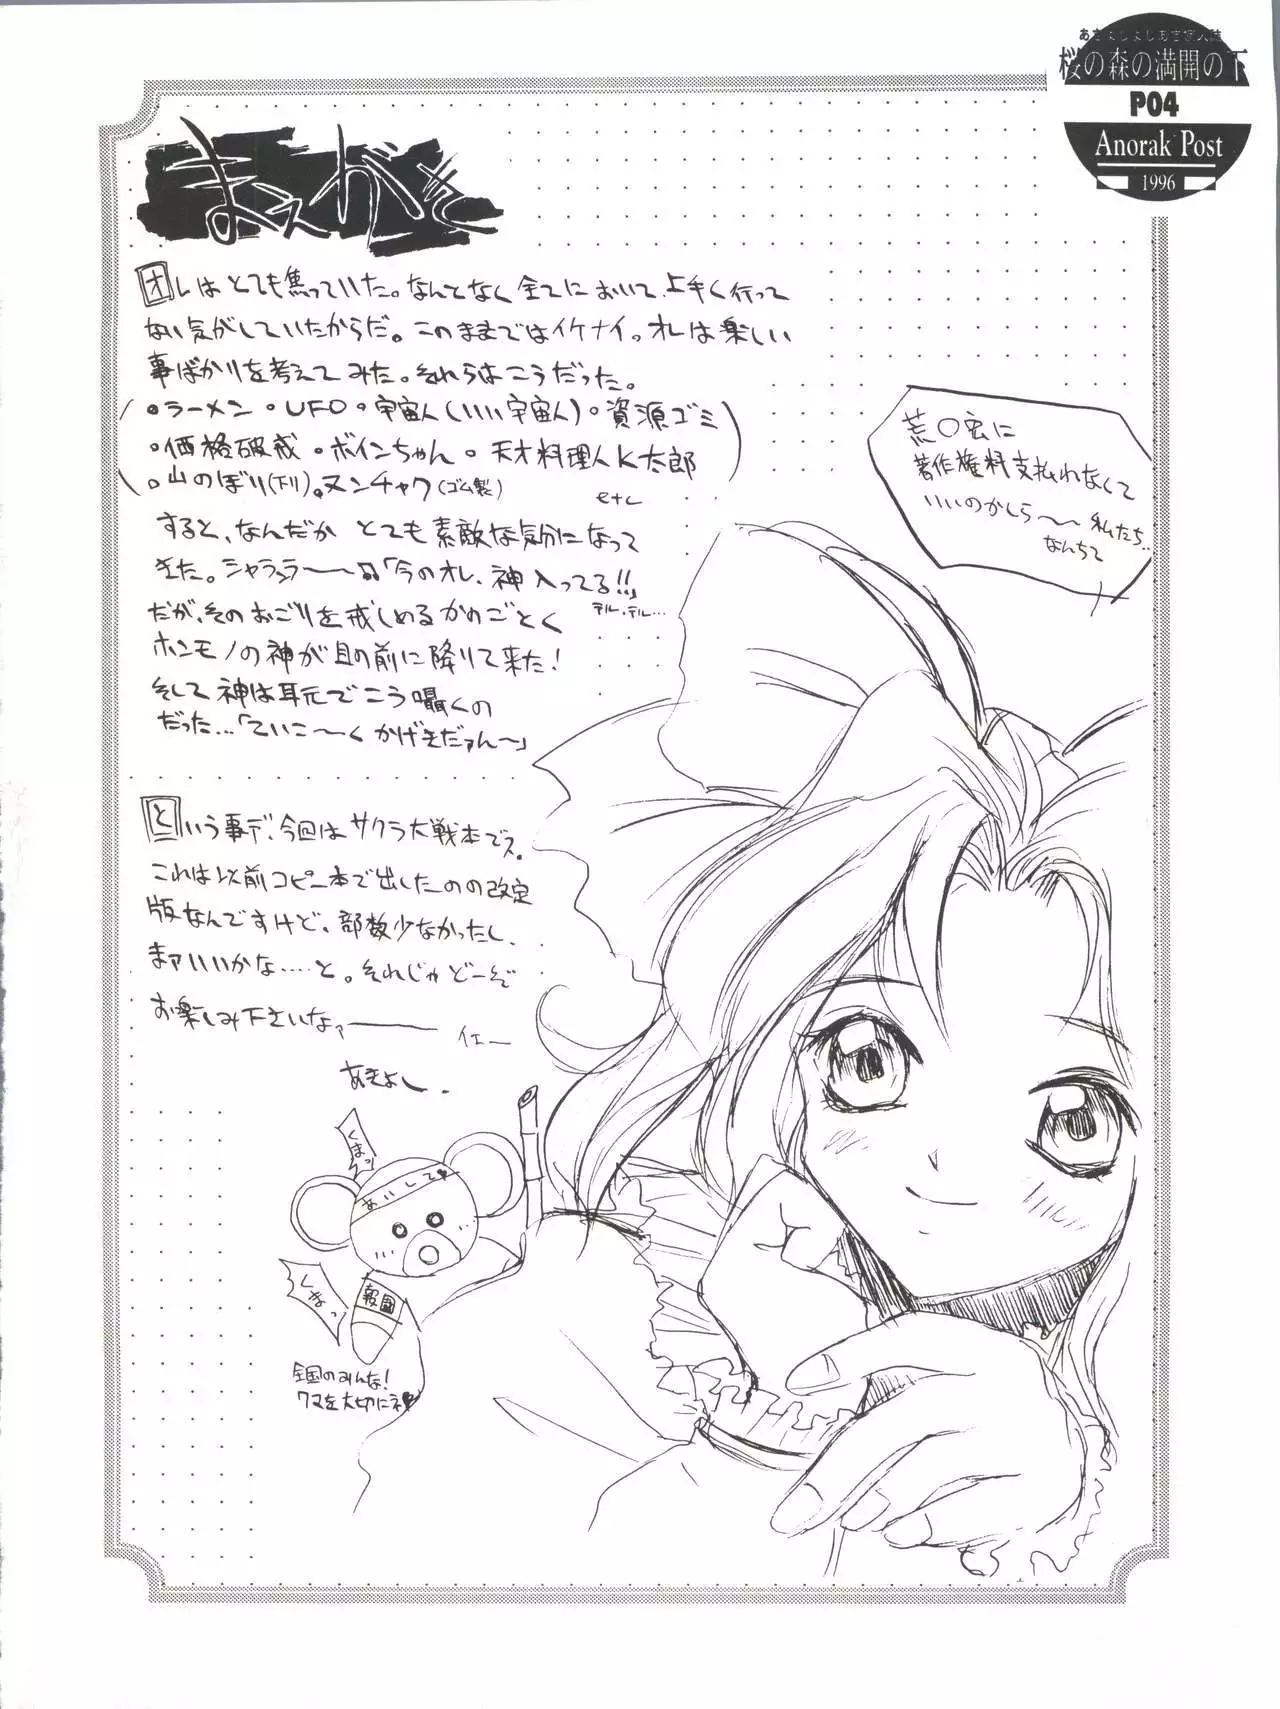 桜の森の満開の下
P04
Anorak Post
1996
まえがき
オレはとても焦っていた。なんとなく全てにおいて、上手く行って
ない気がしていたからだ。このままではイケナイっ。オレは楽しい
事ばかりを考えてみた。それらはこうだった。
・ラーメン・UFO・宇宙人(いい宇宙人)・資源ゴミ
・価格破戒・ボインちゃん・天才料理人K太郎
・山のぼり(下り)。ヌンチャク(ゴム製)
etc
すると、なんだか とても素敵な気分になって
きた。シャララララ〜〜♫「今のオレ、神入ってる!!」
テル、テル…
だが、そのおごりを戒しめるかのごとく
ホンモノの神が目の前に降りて来た!
そして神は耳元でこう囁くの
だった…「ていこ〜〜く かげきだァん〜」
荒〇宏に
著作権料支払れなくて
いいのかしら〜〜私たち..
なんちて
という事デ、今回はサクラ大戦本でス。
これは以前コピー本で出したのの改定
版なんですけど、部数少なかったし、
まァいいかな……と。それじゃどーぞ
お楽しみ下さいなァーーー
イエー
あきよし.
くまッ
あいして♥
くまっ
報國
全国のみんな!
クマを大切にネ♥